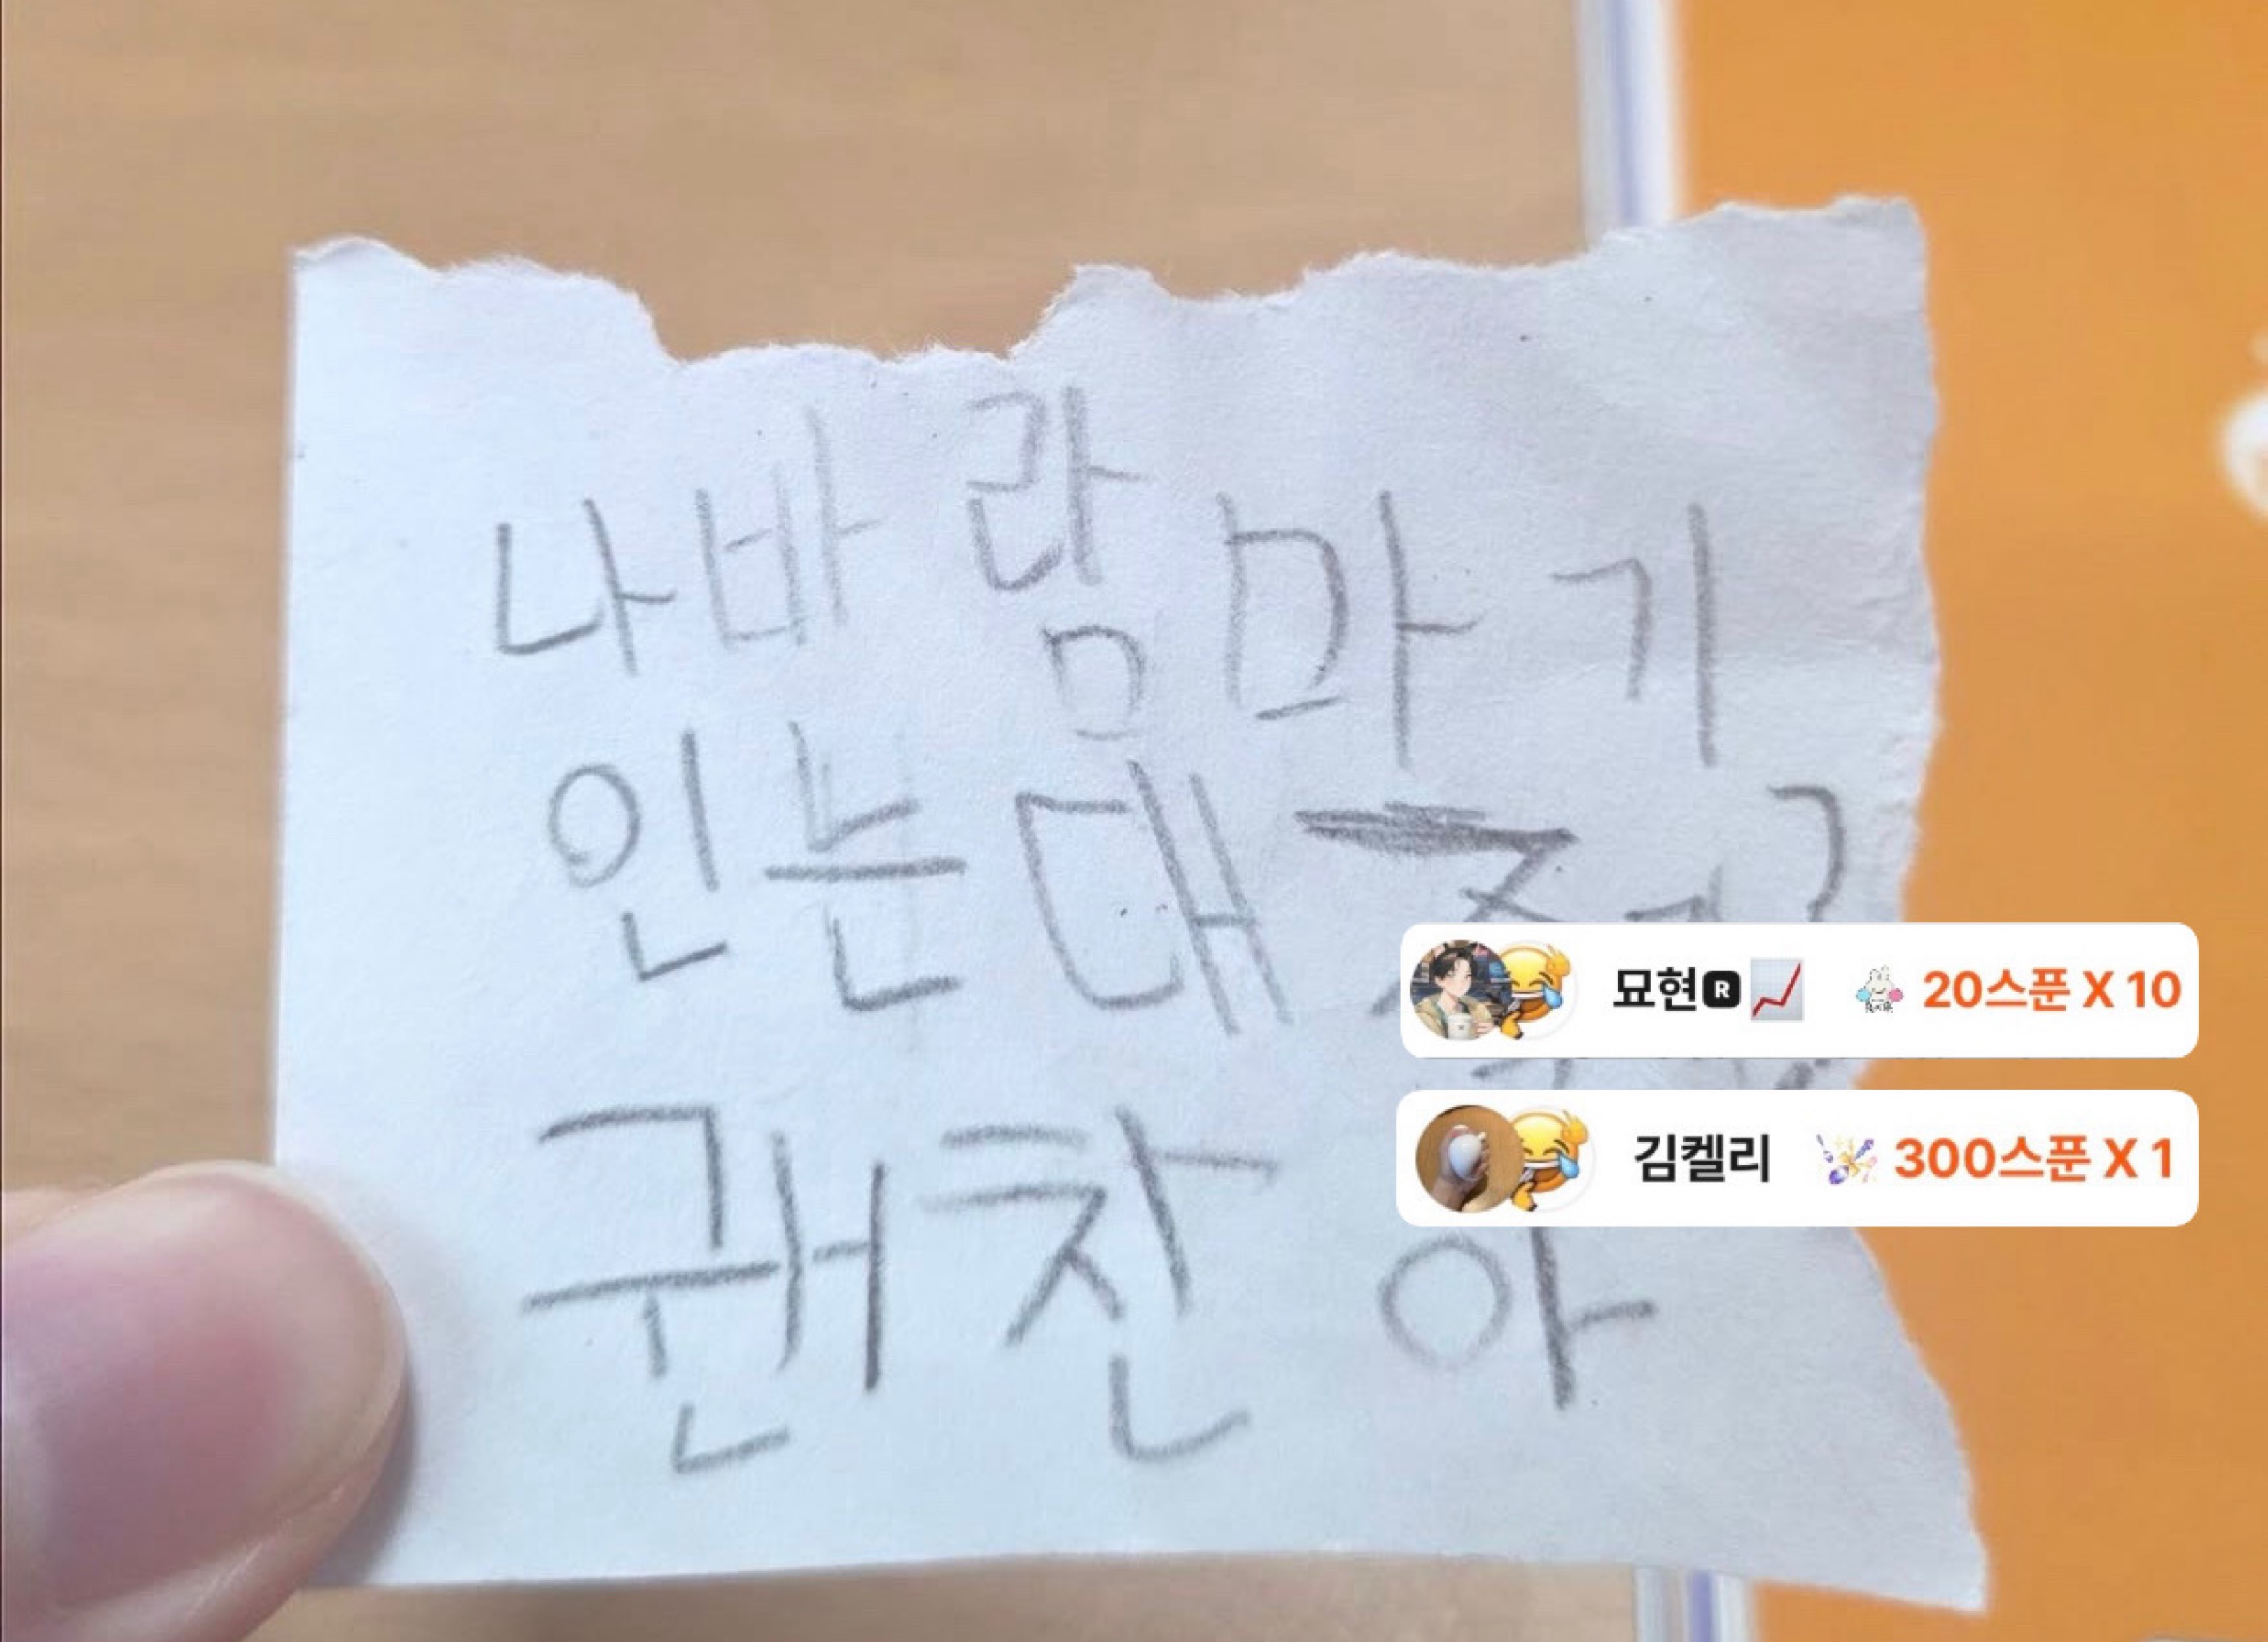 나바람마기
인는대
묘현🆁📈 20스푼 X 10
김켈리 300스푼 X 1
괜찬아